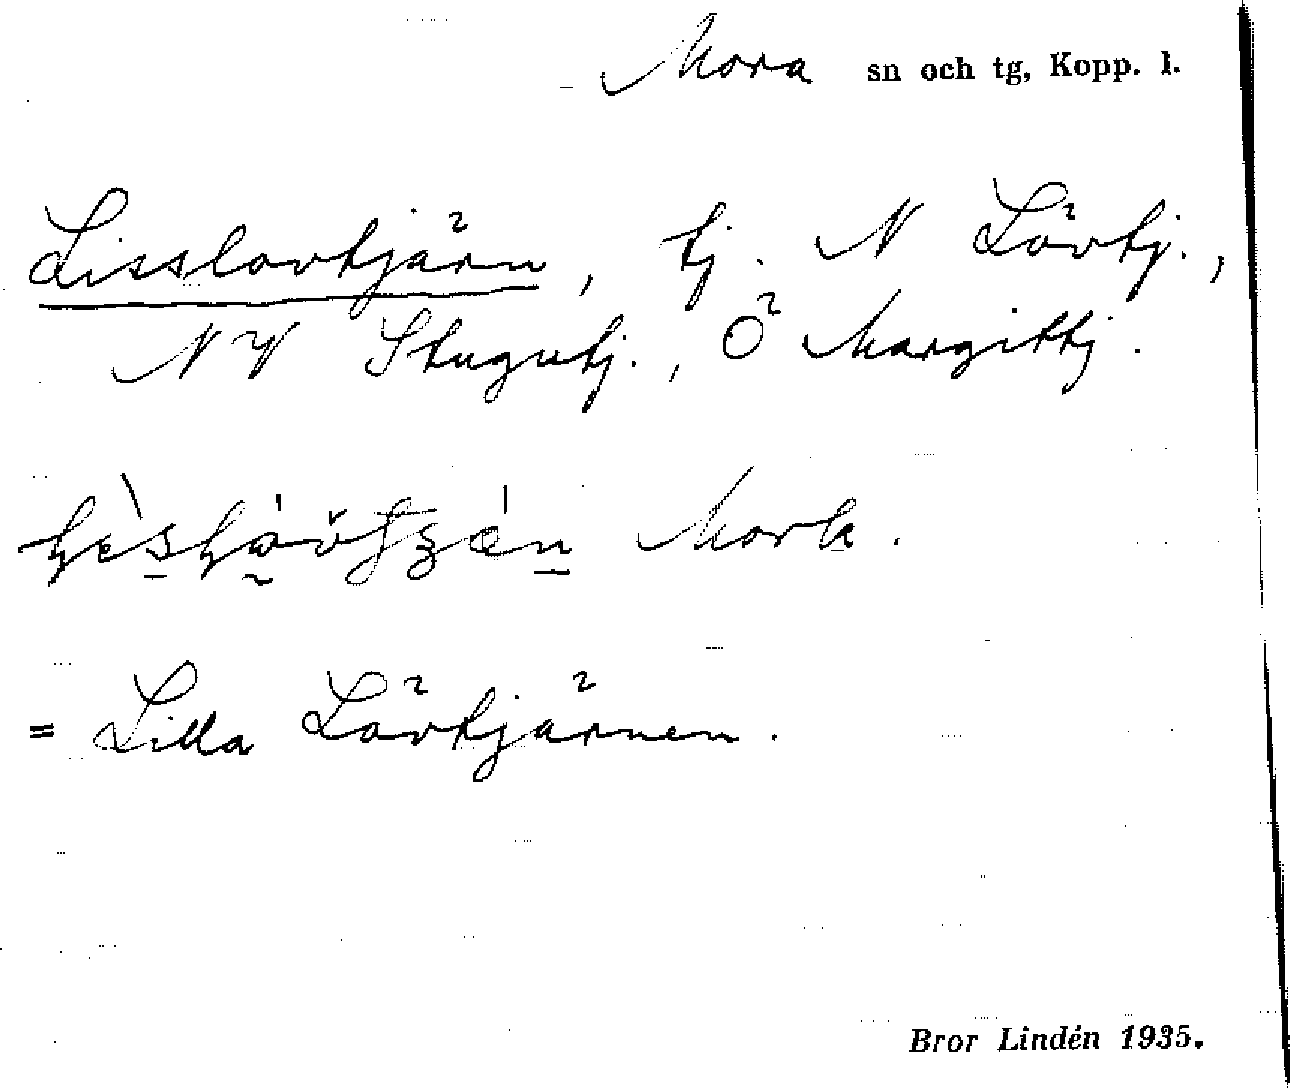 Mora sn och tg, Kopp. l.
Lisslovtjärn, tj. N Lövtj.,
NV Stugutj., Ö Margittj.
= Lilla Lövtjärnen.
Bror Lindén 1935.